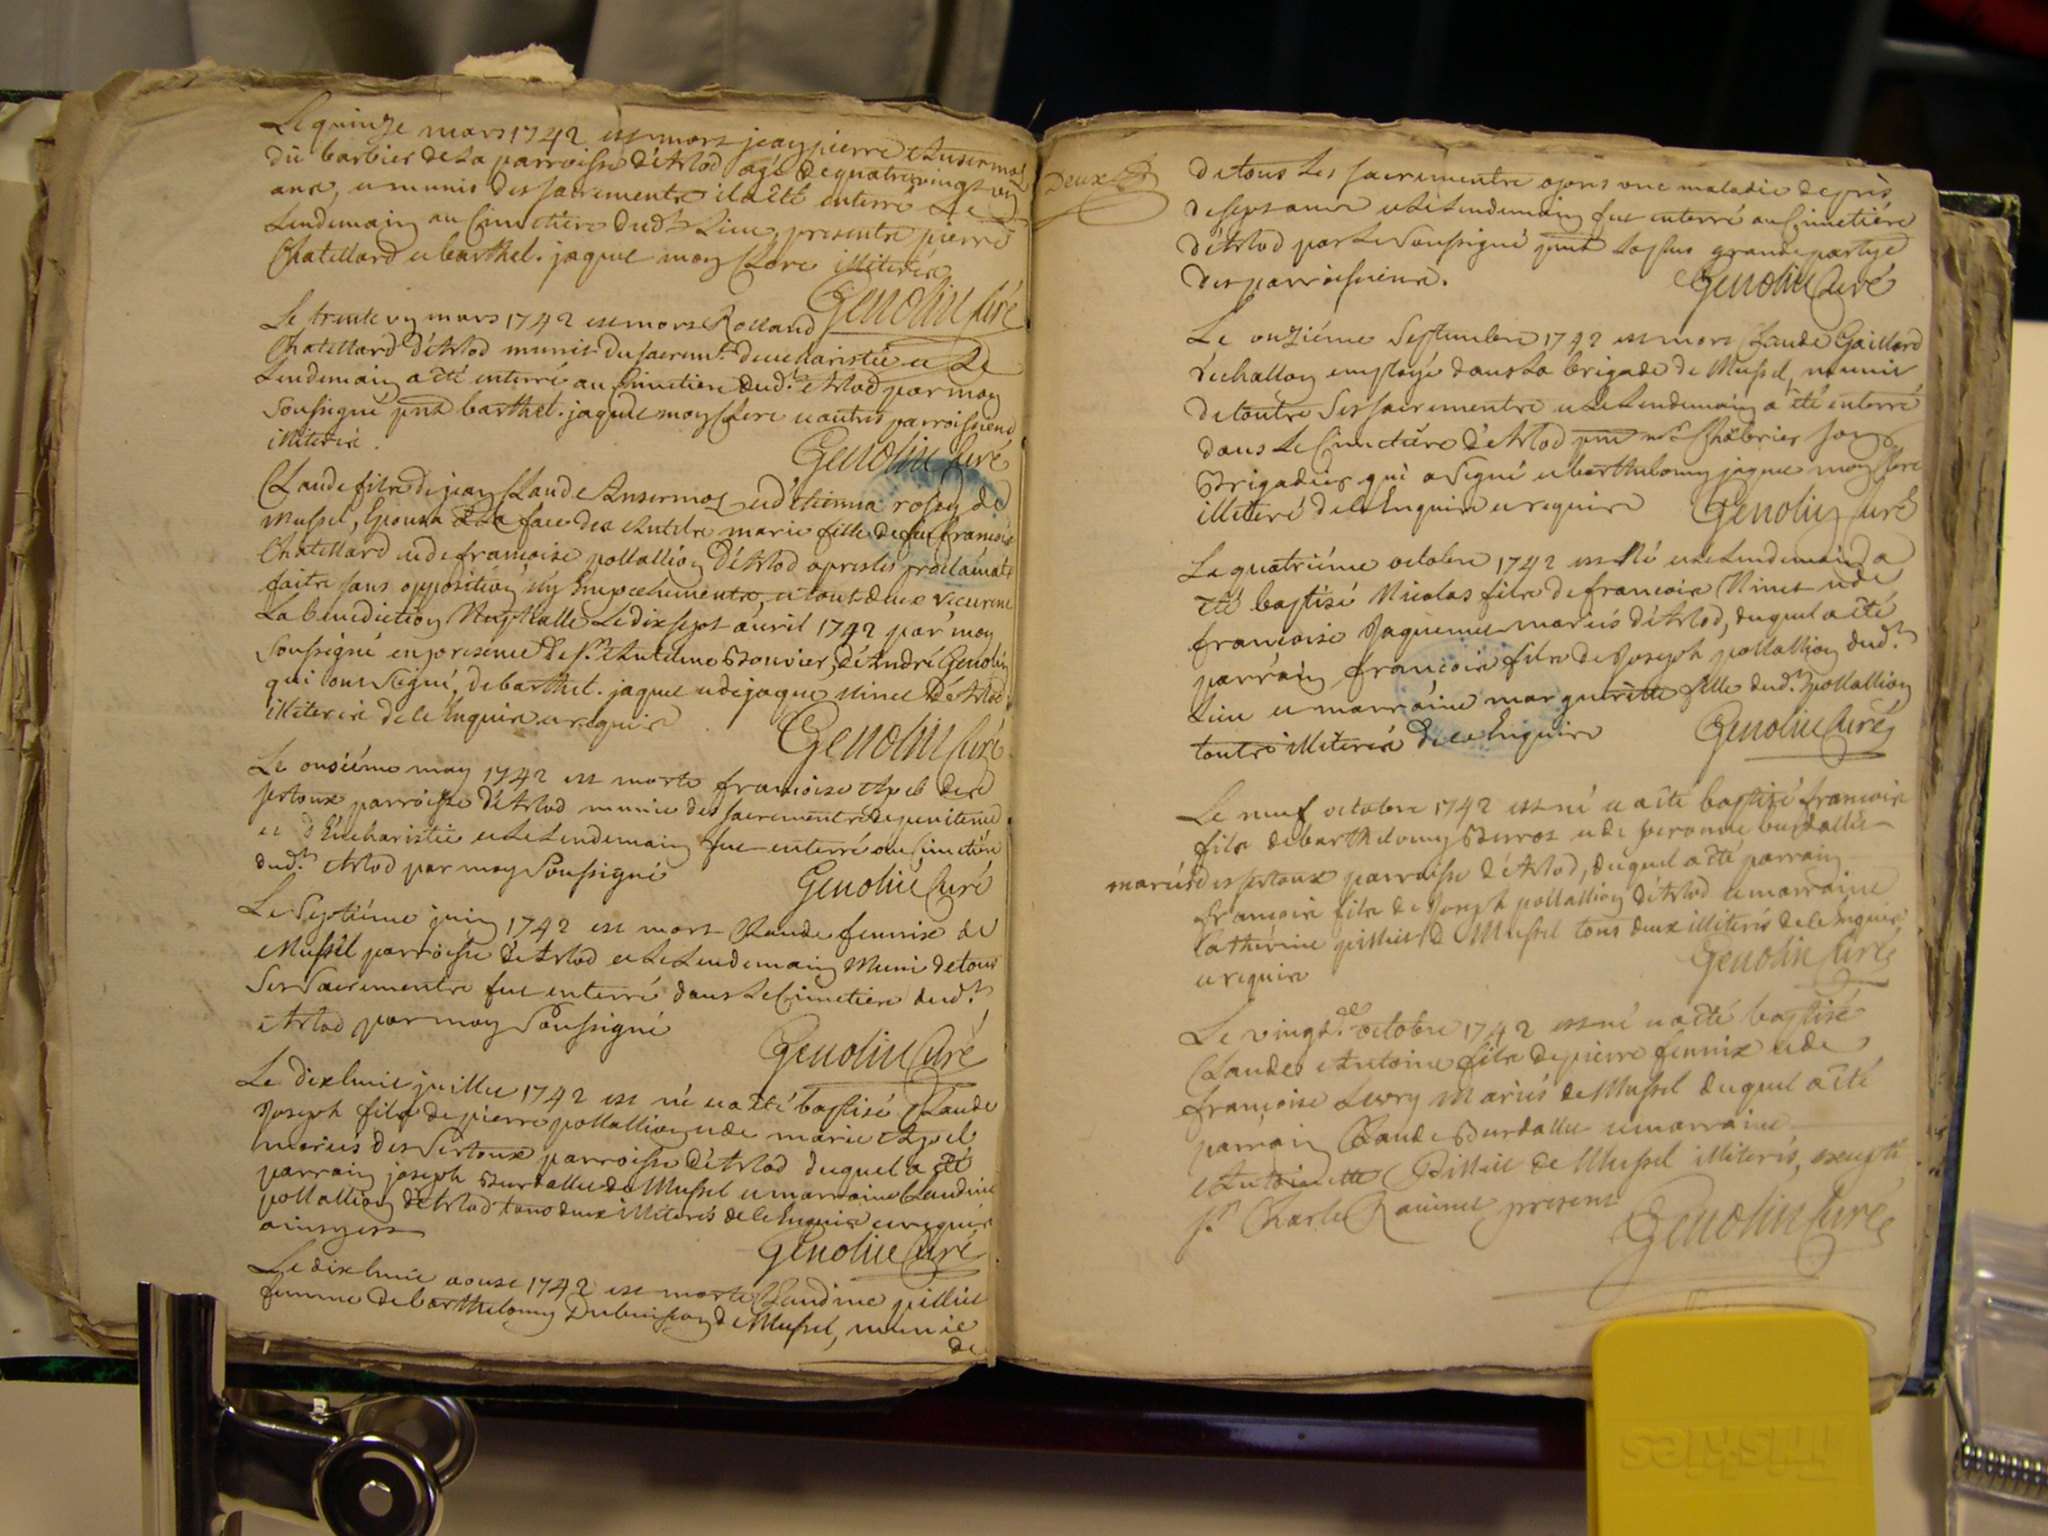 Le quinze mars 1742 est mort jean pierre Ansermoz
du barbier de la parroisse d'Arlod agé de quatrevingt
ans, et munis des sacrements il a été enterré le
lendemain au Cimetiere dud.t Lieu, presents pierre
Chatellard et barthel. jaquet moy Clerc illiterés
Genolin Curé
Le trente un mars 1742 est mort Rolland
Chatellard d'Arlod munis du sacrem.t deucharistie et Le
Lendemain a été enterré au Cimetiere dud.t Arlod par moy
soussigné pnt barthel. jaquet moy Clerc et autres parroissiens
illiterés.
Genolin Curé
Claude fils de jean Claude Ansermoz et d'étienna rosey de
Mussel, Epousa à la face des Autels marie fille de feu francois
Chatellard et de francoise pollallion d'Arlod apres les proclamat.
faites sans opposition ny Empechements, et tout deux recurent
La benediction Nuptialle Le dix sept avril 1742 par moy
soussigné en presence de s.r Antelme Bouvier, d'André Genolin
qui ont Signé, de barthel. jaquet et de jaque Ninet d'Arlod
illiterés de ce Enquis et requis
Genolin Curé
Le onsiéme may 1742 est morte francoise Apel des
sertoux parroisse d'Arlod munie des sacrements de penitence
et d'Eucharistie et Le Lendemain fut enterré au Cimetiére
dud.t Arlod par moy Soussigné
Genolin Curé
Le Septiéme juin 1742 est mort Claude fennix de
Mussel parroisse d'Arlod et Le Lendemain Muni de tous
Ses Sacrements fut enterré dans Le Cimetiere dud.t
Arlod par moy Soussigné
Genolin Curé
Le dixhuit juillet 1742 est né et a été baptisé Claude
Joseph fils de pierre pollallion et de marie Apel
mariés des Sertoux parroisse d'Arlod duquel a été
parrain joseph Burdallet de Mussel et marraine Claudine
pollallion d'Arlod tous deux illiterés de ce Enquis et requis
ainsy est
Genolin Curé
Le dixhuit aoust 1742 est morte Claudine pilliet
femme de barthelomy Dubuisson de Mussel, munie
de
deux
de tous Les sacrements apres une maladie de près
de sept ans et Le Lendemain fut enterré au Cimetiére
d'Arlod par Le Soussigné pnt La plus grande partye
des parroissiens.
Genolin Curé
Le onziéme Septembre 1742 est mort Claude Gaillard
d'echallon employé dans La brigade de Mussel, munis
de toutes Ses sacrements et Le Lendemain a été enterré
dans Le Cimetiére d'Arlod pnt m.r Chabrier son
Brigadier qui a Signé et barthelomy jaquet moy Clerc
illiteré de ce Enquis et requis
Genolin Curé
Le quatriéme octobre 1742 est Né et Le Lendemain a
été baptisé Nicolas fils de francois Ninet et de
francoise Jaquemet mariés d'Arlod, duquel a été
parrain francois fils de Joseph pollallion dud.t
Lieu et marraine margueritte fille dud.t pollallion
toutes illiterés de ce Enquis
Genolin Curé
Le neuf octobre 1742 est né et a été baptisé francois
fils de barthelomy Berrot et de peronne burdallet
mariés des sertoux parroisse d'Arlod, duquel a été parrain
francois fils de Joseph pollallion d'Arlod et marraine
Catherine pilliet de Mussel tous deux illiterés de ce Enquis
et requis
Genolin Curé
Le vingt octobre 1742 est né et a été baptisé
Claude Antoine fils de pierre fennix et de
françoise Levry Mariés de Mussel duquel a été
parrain Claude Burdallet et marraine
Antoinette Pilliet de Mussel illiterés, excepté
s.r Charle Ravinet present
Genolin Curé
Triskies